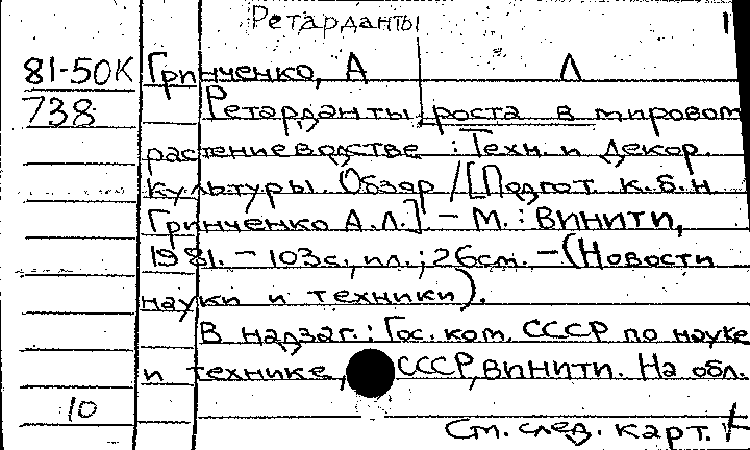 Ретарданты
81-50К Гринченко, А Л
738 Ретарданты роста в мировом
растениеводстве : Техн. и декор.
культуры. Обзор / [Подгот. к.б.н
Гринченко А.Л.] - М. : ВИНИТИ,
1981. - 103с., ил.; 26см. - (Новости
науки и техники).
В надзаг.: Гос. ком. СССР по науке
и технике, СССР, ВИНИТИ. На обл.
10
См. след. карт.